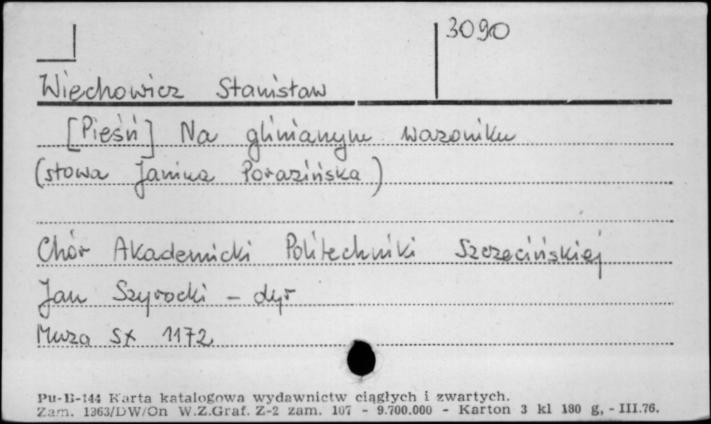 3090
Wiechowicz Stanisław
[Pieśń] Na glinianym wazoniku
(słowa Janina Porazińska)
Chór Akademicki Politechniki Szczecińskiej
Jan Szyrocki - dyr
Muza SX 1172
Pu-B-144 Karta katalogowa wydawnictw ciągłych i zwartych.
Zam. 1363/DW/On W.Z.Graf. Z-2 zam. 107 - 9.700.000 - Karton 3 kl 180 g, - III.76.